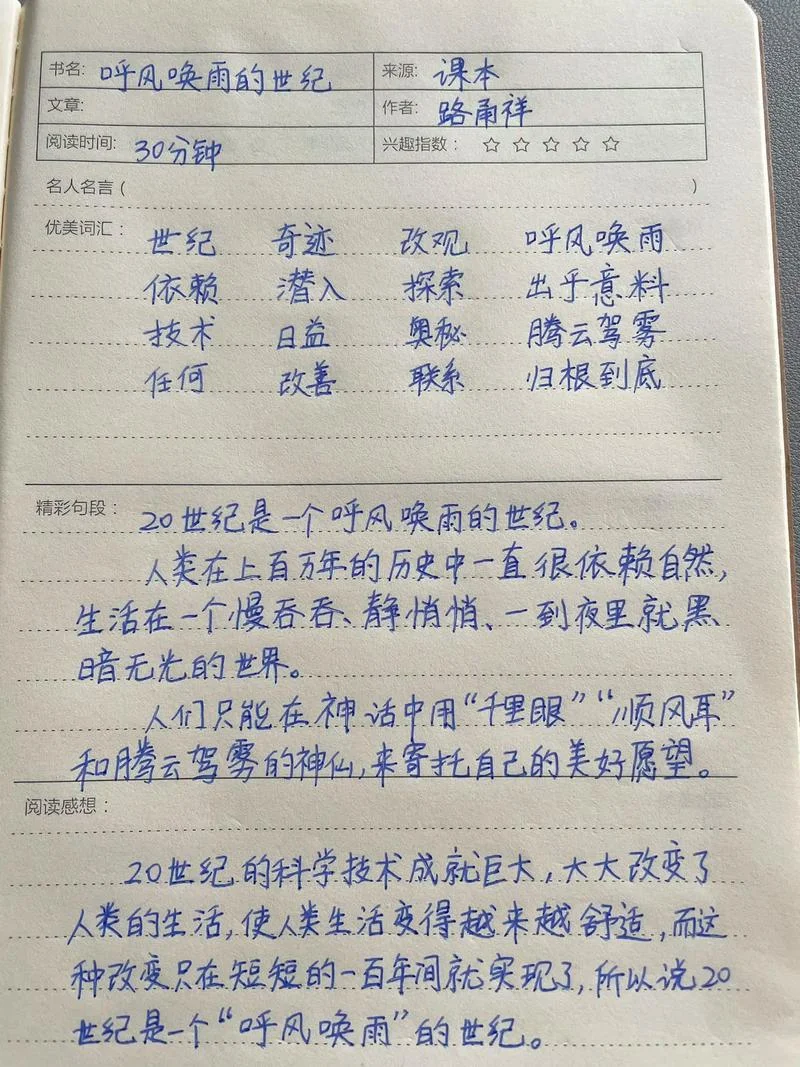 书名: 呼风唤雨的世纪 来源: 课本
文章: 作者: 路甬祥
阅读时间: 30分钟 兴趣指数: ☆ ☆ ☆ ☆ ☆
名人名言 ( )
优美词汇: 世纪 奇迹 改观 呼风唤雨
依赖 潜入 探索 出乎意料
技术 日益 奥秘 腾云驾雾
任何 改善 联系 归根到底
精彩句段: 20世纪是一个呼风唤雨的世纪。
人类在上百万年的历史中一直很依赖自然,
生活在一个慢吞吞、静悄悄、一到夜里就黑
暗无光的世界。
人们只能在神话中用“千里眼”“顺风耳”
和腾云驾雾的神仙,来寄托自己的美好愿望。
阅读感想:
20世纪的科学技术成就巨大,大大改变了
人类的生活,使人类生活变得越来越舒适,而这
种改变只在短短的一百年间就实现了,所以说20
世纪是一个“呼风唤雨”的世纪。